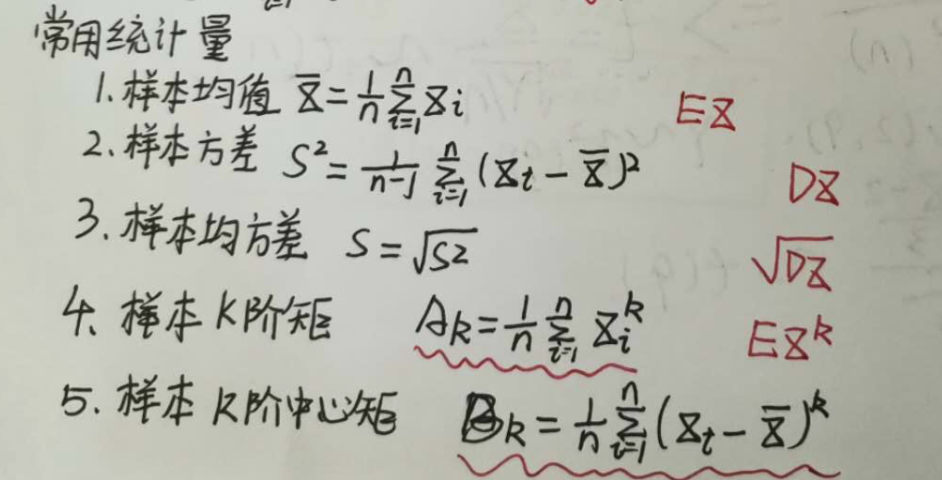 常用统计量
1.样本均值 X̄ = 1/n ∑_{i=1}^{n} X_i EX
2.样本方差 S² = 1/(n-1) ∑_{i=1}^{n} (X_i - X̄)² DX
3.样本均方差 S = √S² √DX
4.样本K阶矩 A_k = 1/n ∑_{i=1}^{n} X_i^k EX^k
5.样本K阶中心矩 B_k = 1/n ∑_{i=1}^{n} (X_i - X̄)^k